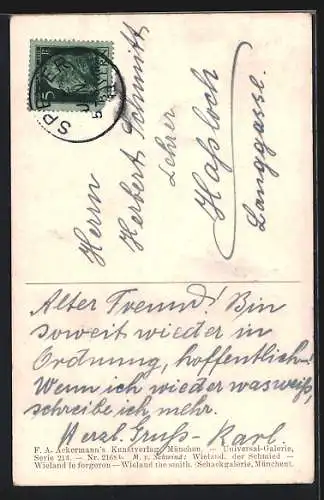 SPEYER
5
Herrn
Herbert Schmitt
Lehrer
Haßloch
Langgasse.
Alter Freund! Bin
soweit wieder in
Ordnung, hoffentlich!
Wenn ich wieder was weiß,
schreibe ich mehr.
Herzl. Gruß - Karl.
F. A. Ackermann's Kunstverlag, München. — Universal-Galerie,
Serie 213. — Nr. 2168. M. v. Schwind: Wieland, der Schmied —
Wieland le forgeron — Wieland the smith. (Schackgalerie, München).